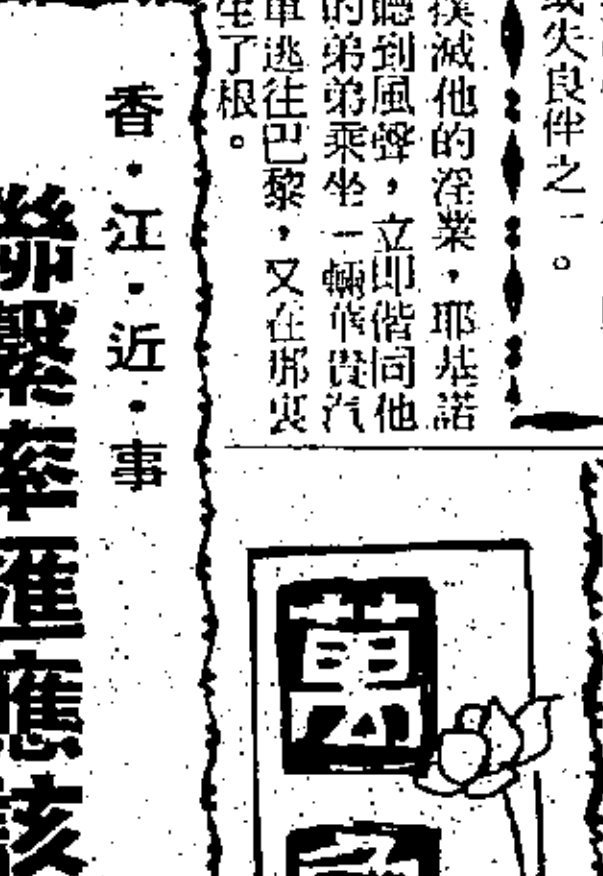 或失良伴之一。
撲滅他的淫業，耶基諾
聽到風聲，立即偕同他
的弟弟乘坐一輛華貴汽
車逃往巴黎，又在那裏
生了根。
萬
香·江·近·事
聯繫率匯應該